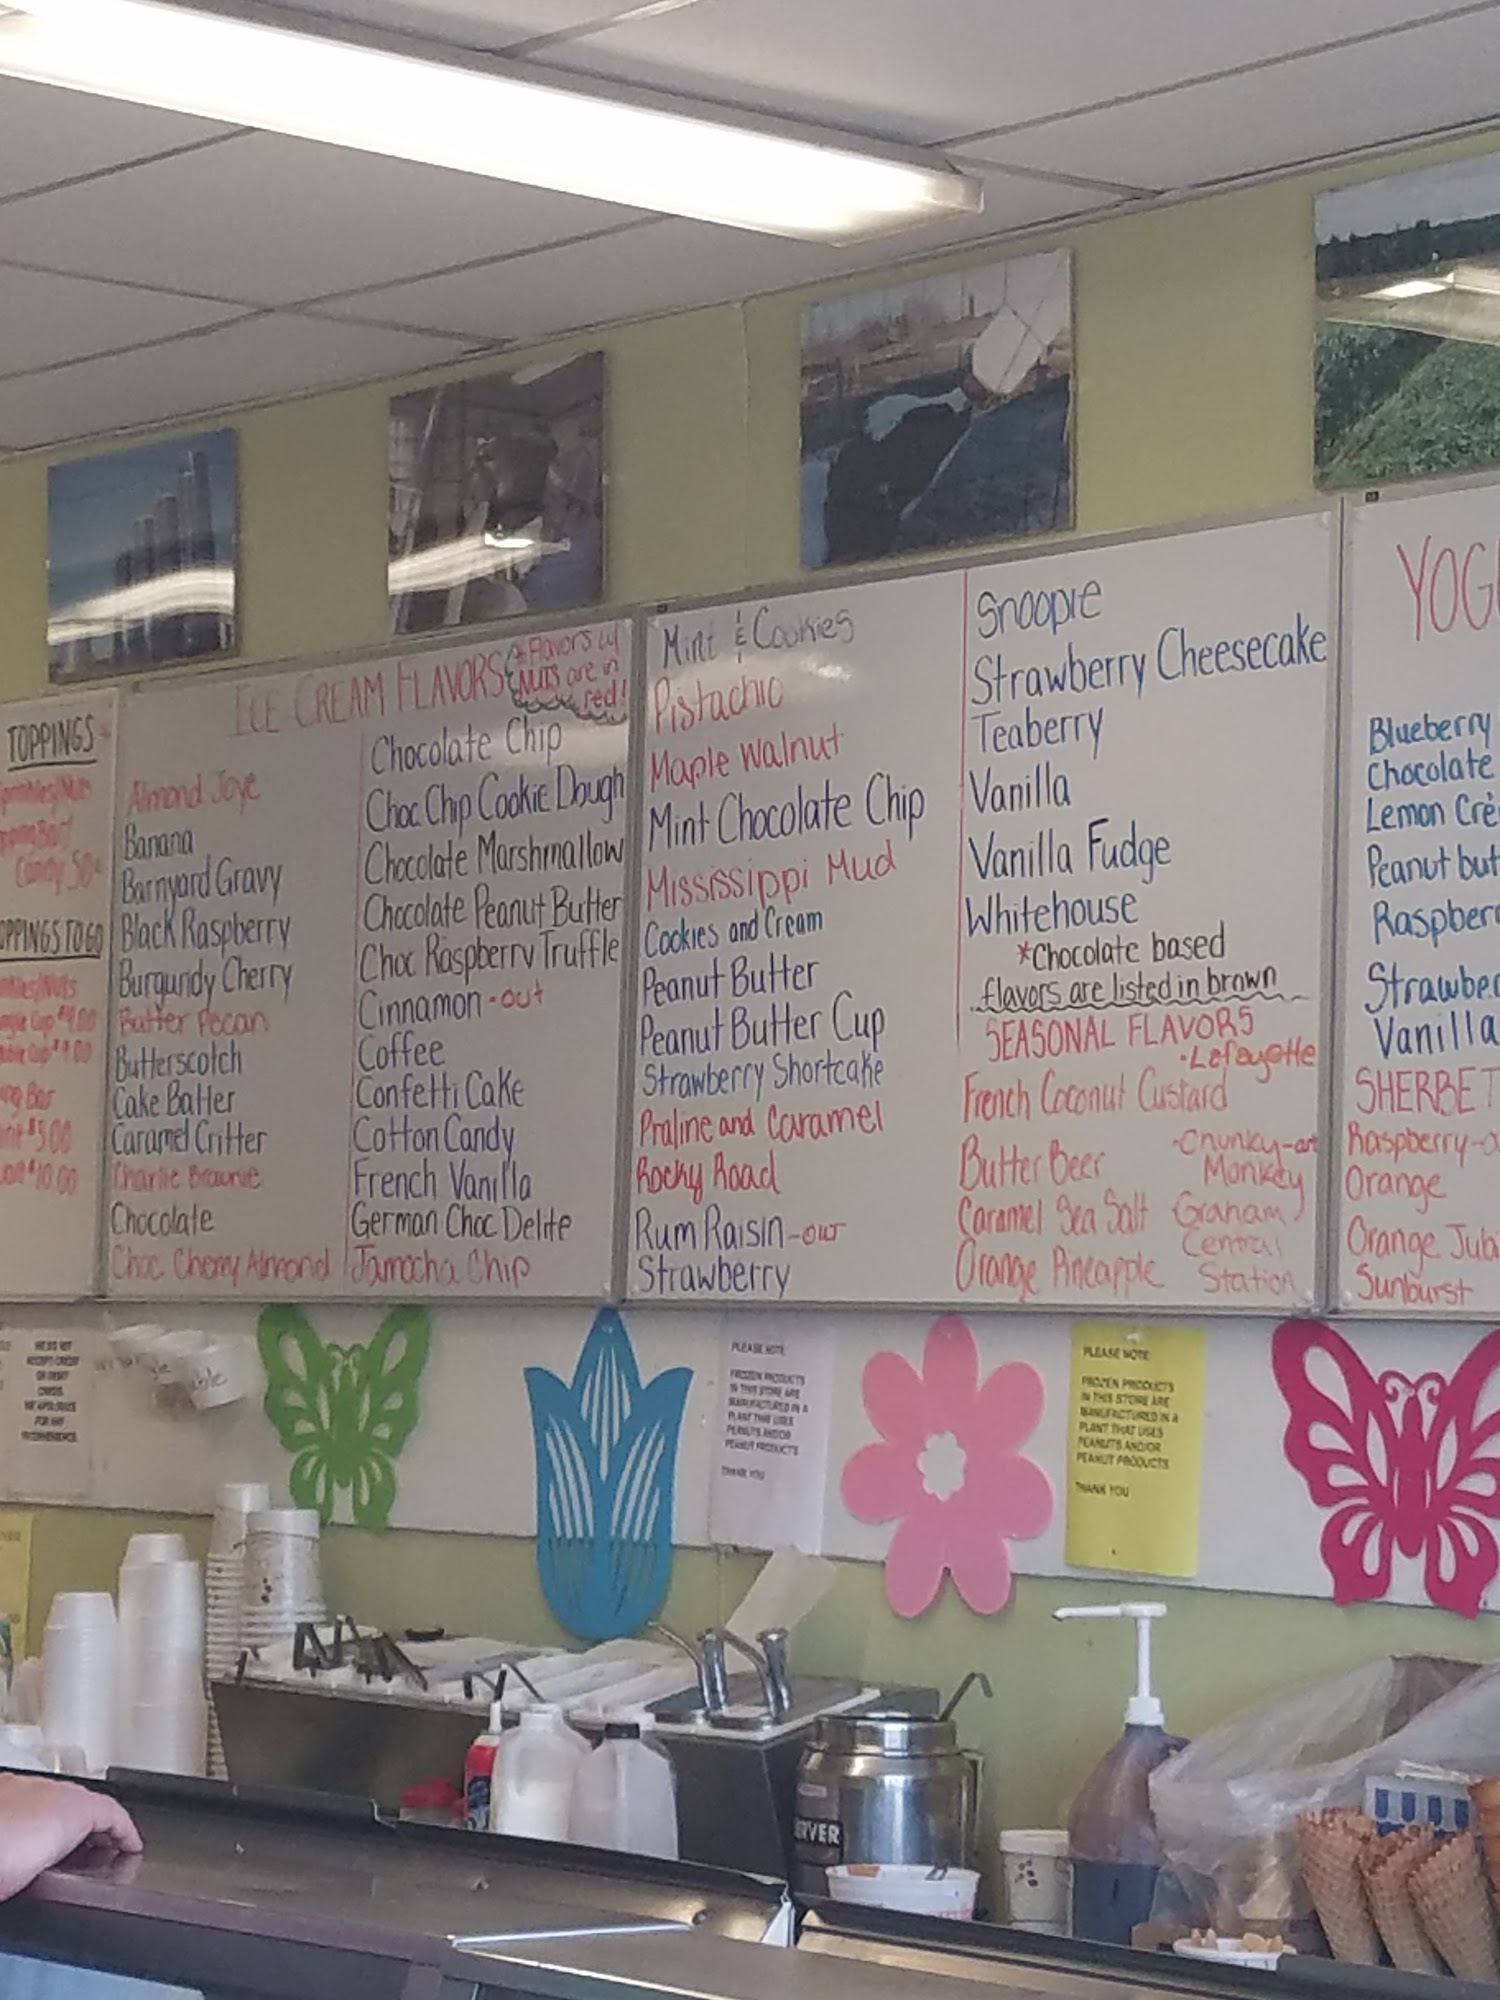 TOPPINGS
Candy 50¢
OPPINGS TO GO
$5.00
$10.00
ICE CREAM FLAVORS
* Flavors w/
NUTS are in
red!
Almond Joye
Banana
Barnyard Gravy
Black Raspberry
Burgundy Cherry
Butter Pecan
Butterscotch
Cake Batter
Caramel Critter
Charlie Brownie
Chocolate
Choc Cherry Almond
Chocolate Chip
Choc Chip Cookie Dough
Chocolate Marshmallow
Chocolate Peanut Butter
Choc Raspberry Truffle
Cinnamon - out
Coffee
Confetti Cake
Cotton Candy
French Vanilla
German Choc Delite
Jamocha Chip
Mint & Cookies
Pistachio
Maple Walnut
Mint Chocolate Chip
Mississippi Mud
Cookies and Cream
Peanut Butter
Peanut Butter Cup
Strawberry Shortcake
Praline and Caramel
Rocky Road
Rum Raisin - out
Strawberry
Snoopie
Strawberry Cheesecake
Teaberry
Vanilla
Vanilla Fudge
Whitehouse
*Chocolate based
flavors are listed in brown
SEASONAL FLAVORS
• Lefayette
French Coconut Custard
Butter Beer
Caramel Sea Salt
Orange Pineapple
• Chunky - out
Monkey
Graham
Central
Station
YOG
Blueberry
Chocolate
Lemon Crè
Peanut but
Raspber
Strawber
Vanilla
SHERBET
Raspberry - o
Orange
Orange Jub
Sunburst
WE DO NOT
ACCEPT CREDIT
OR DEBIT
CARDS.
WE APOLOGIZE
FOR ANY
INCONVENIENCE.
PLEASE NOTE:
FROZEN PRODUCTS
IN THIS STORE ARE
MANUFACTURED IN A
PLANT THAT USES
PEANUTS AND/OR
PEANUT PRODUCTS
THANK YOU
PLEASE NOTE:
FROZEN PRODUCTS
IN THIS STORE ARE
MANUFACTURED IN A
PLANT THAT USES
PEANUTS AND/OR
PEANUT PRODUCTS
THANK YOU
ERVER